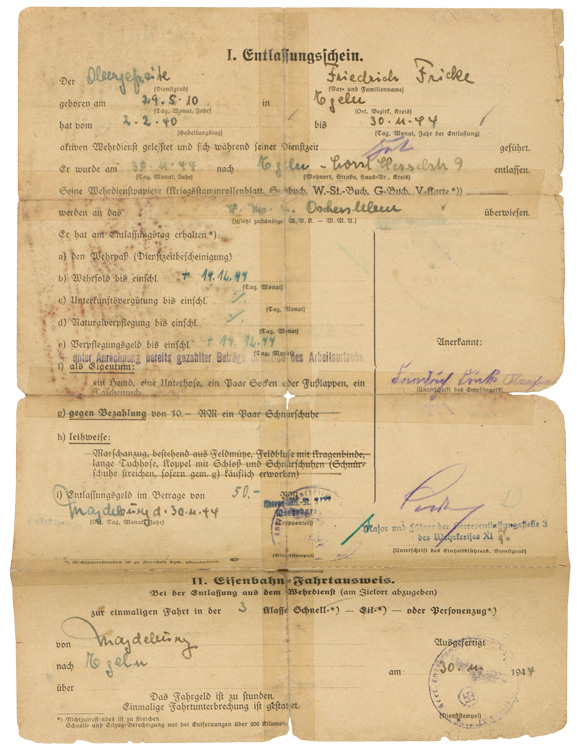 I. Entlassungsschein.
Der Obergefreite Friedrich Fricke
(Dienstgrad) (Vor- und Familienname)
geboren am 29.5.10 in Egeln
(Tag, Monat, Jahr) (Ort, Bezirk, Kreis)
hat vom 2-2-40 bis 30-11-44
(Gestellungstag) (Tag, Monat, Jahr der Entlassung)
aktiven Wehrdienst geleistet und sich während seiner Dienstzeit gut geführt.
Er wurde am 30-11-44 nach Egeln - Horst Wesselstr 9 entlassen.
(Tag, Monat, Jahr) (Wohnort, Straße, Haus-Nr., Kreis)
Seine Wehrdienstpapiere (Kriegsstammrollenblatt, Gesbuch, W.-St.-Buch, G-Buch, V-Karte*))
werden an das Oschersleben überwiesen.
(Zuletzt zuständige W.B.K. – W.M.A.)
Er hat am Entlassungstag erhalten*):
a) den Wehrpaß (Dienstzeitbescheinigung)
b) Wehrsold bis einschl. + 14.12.44
(Tag, Monat)
c) Unterkunftsvergütung bis einschl.
(Tag, Monat)
d) Naturalverpflegung bis einschl.
(Tag, Monat)
e) Verpflegungsgeld bis einschl. + 14.12.44
(Tag, Monat)
unter Anrechnung bereits gezahlter Beträge des Arbeitsurlaubs
Anerkannt:
f) als Eigentum:
ein Hemd, eine Unterhose, ein Paar Socken oder Fußlappen, ein
Taschentuch
(Unterschrift des Empfängers)
g) gegen Bezahlung von 10.- RM ein Paar Schnürschuhe
h) leihweise:
Marschanzug, bestehend aus Feldmütze, Feldbluse mit Kragenbinde,
lange Tuchhose, Koppel mit Schloß und Schnürschuhen (Schnür-
schuhe streichen, sofern gem. g) käuflich erworben)
i) Entlassungsgeld im Betrage von 50.-
Magdeburg d. 30-11-44
(Ort, Tag, Monat, Jahr) (Truppenteil)
Major und Führer der Heeresentlassungsstelle 3
des Wehrkreises XI
(Dienststempel) (Unterschrift des Einheitsführers, Dienstgrad)
*) Nichtzutreffendes ist zu streichen
II. Eisenbahn-Fahrtausweis.
Bei der Entlassung aus dem Wehrdienst (am Zielort abzugeben)
zur einmaligen Fahrt in der 3 Klasse Schnell-*) – Eil-*) – oder Personenzug*)
von Magdeburg Ausgefertigt
nach Egeln
am 30.11. 1944
über
Das Fahrgeld ist zu stunden.
Einmalige Fahrtunterbrechung ist gestattet.
(Dienststempel)
*) Nichtzutreffendes ist zu streichen
Schnell- und Eilzug-Berechtigung nur bei Entfernungen über 200 Kilometer